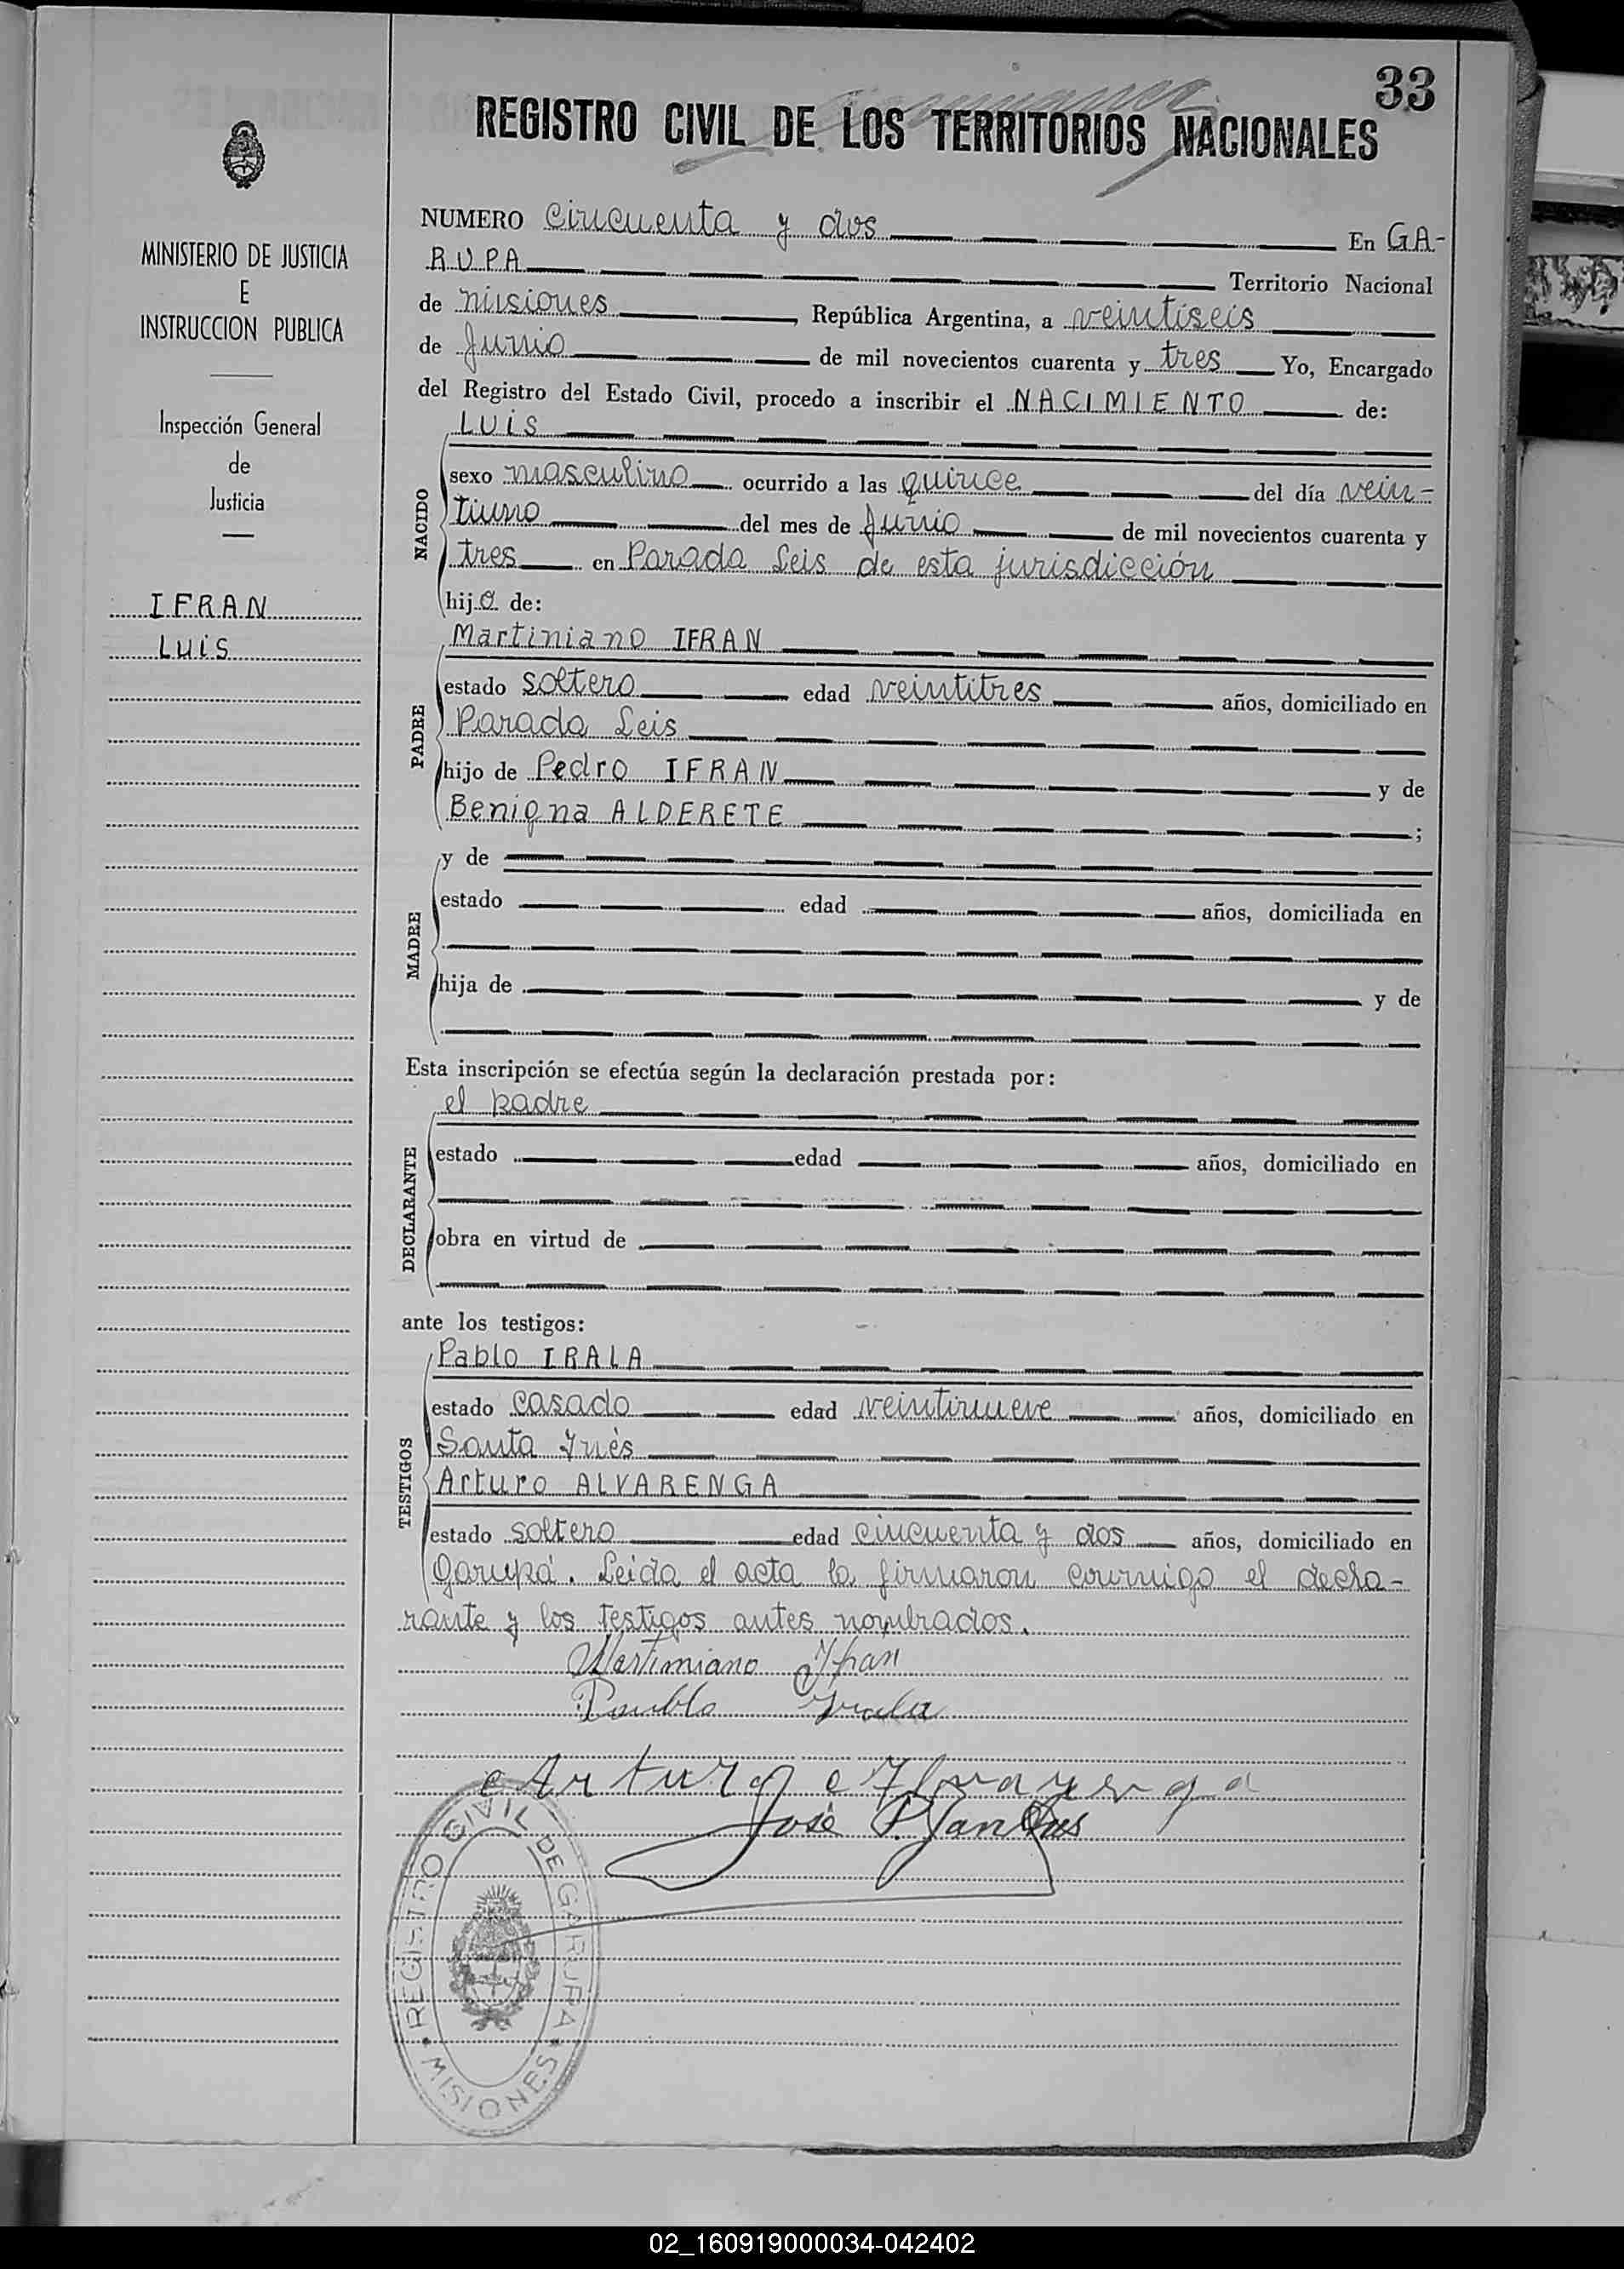 33
REGISTRO CIVIL DE LOS TERRITORIOS NACIONALES
MINISTERIO DE JUSTICIA
E
INSTRUCCION PUBLICA
Inspección General
de
Justicia
IFRAN
LUIS
NUMERO cincuenta y dos En GA-
RUPA Territorio Nacional
de misiones, República Argentina, a veintiseis
de Junio de mil novecientos cuarenta y tres Yo, Encargado
del Registro del Estado Civil, procedo a inscribir el NACIMIENTO de:
LUIS
NACIDO
sexo masculino ocurrido a las quince del día vein-
tiuno del mes de Junio de mil novecientos cuarenta y
tres en Parada Seis de esta jurisdicción
hijo de:
Martiniano IFRAN
PADRE
estado soltero edad veintitres años, domiciliado en
Parada Seis
hijo de Pedro IFRAN y de
Benigna ALDERETE ;
y de
MADRE
estado edad años, domiciliada en
hija de y de
Esta inscripción se efectúa según la declaración prestada por:
el padre
DECLARANTE
estado edad años, domiciliado en
obra en virtud de
ante los testigos:
Pablo IRALA
TESTIGOS
estado casado edad veintinueve años, domiciliado en
Santa Inés
Arturo ALVARENGA
estado soltero edad cincuenta y dos años, domiciliado en
Garupá. Leida el acta la firmaron conmigo el decla-
rante y los testigos antes nombrados.
Martimiano Ifran
Pablo Irala
Arturo Alvarenga
José P.
REGISTRO CIVIL DE GARUPA
MISIONES
02_160919000034-042402